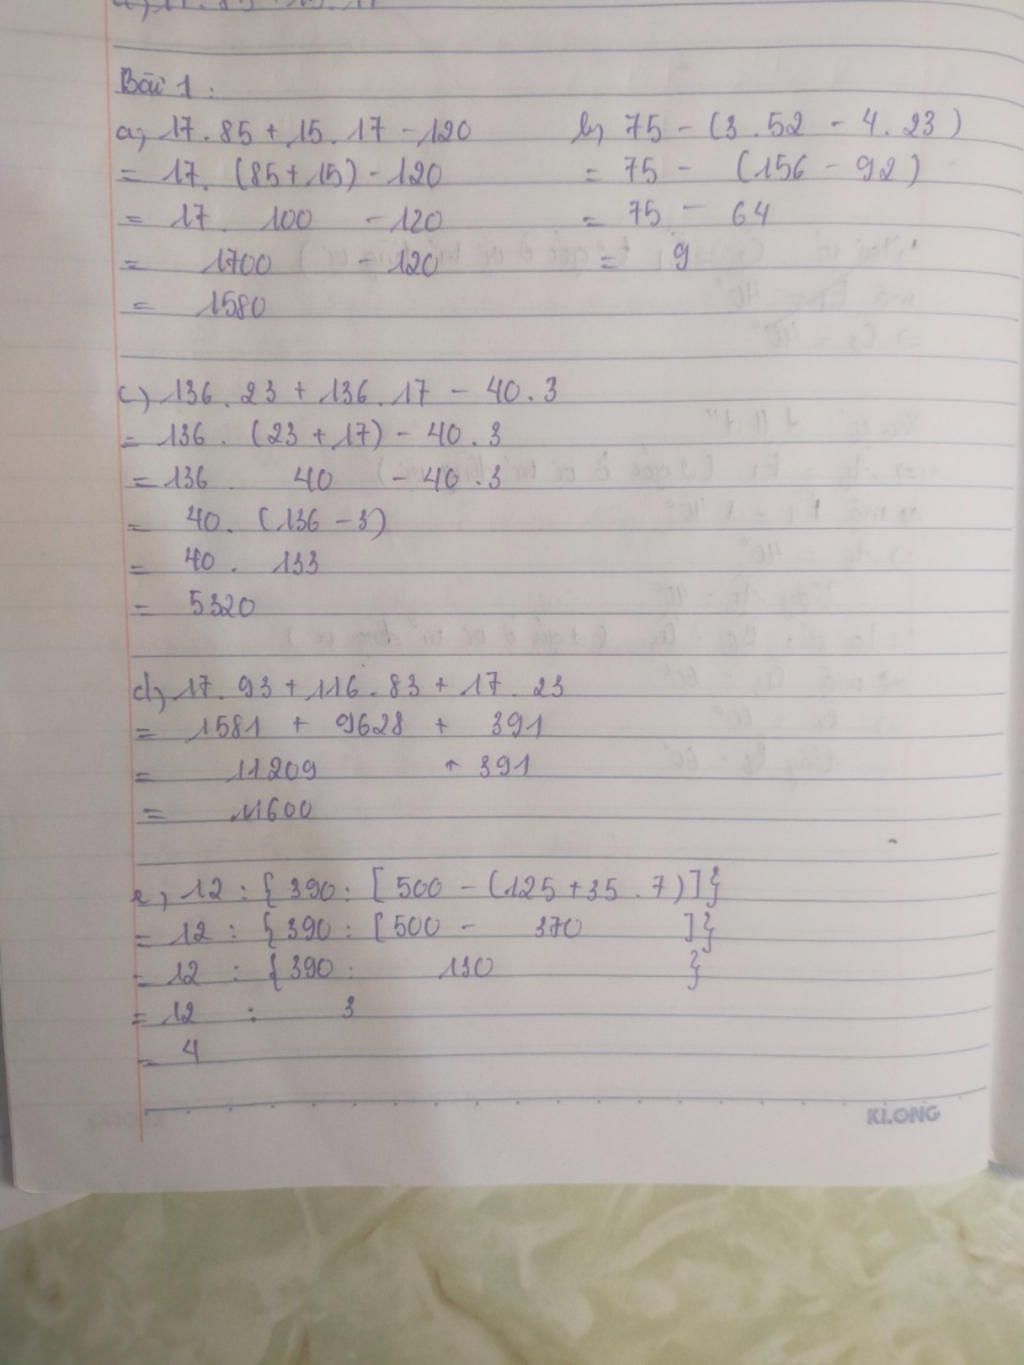 Bài 1:
a, 17.85 + 15.17 - 120
= 17. (85+15) - 120
= 17. 100 - 120
= 1700 - 120
= 1580
b, 75 - (3.52 - 4.23)
= 75 - (156 - 92)
= 75 - 64
= 9
c, 136.23 + 136.17 - 40.3
= 136. (23 + 17) - 40.3
= 136. 40 - 40.3
= 40. (136 - 3)
= 40. 133
= 5320
d, 17.93 + 116.83 + 17.23
= 1581 + 9628 + 391
= 11209 + 391
= 11600
e, 12 : { 390 : [ 500 - (125 + 35.7)]}
= 12 : { 390 : [500 - 370 ]}
= 12 : { 390 : 130 }
= 12 : 3
= 4
KLONG